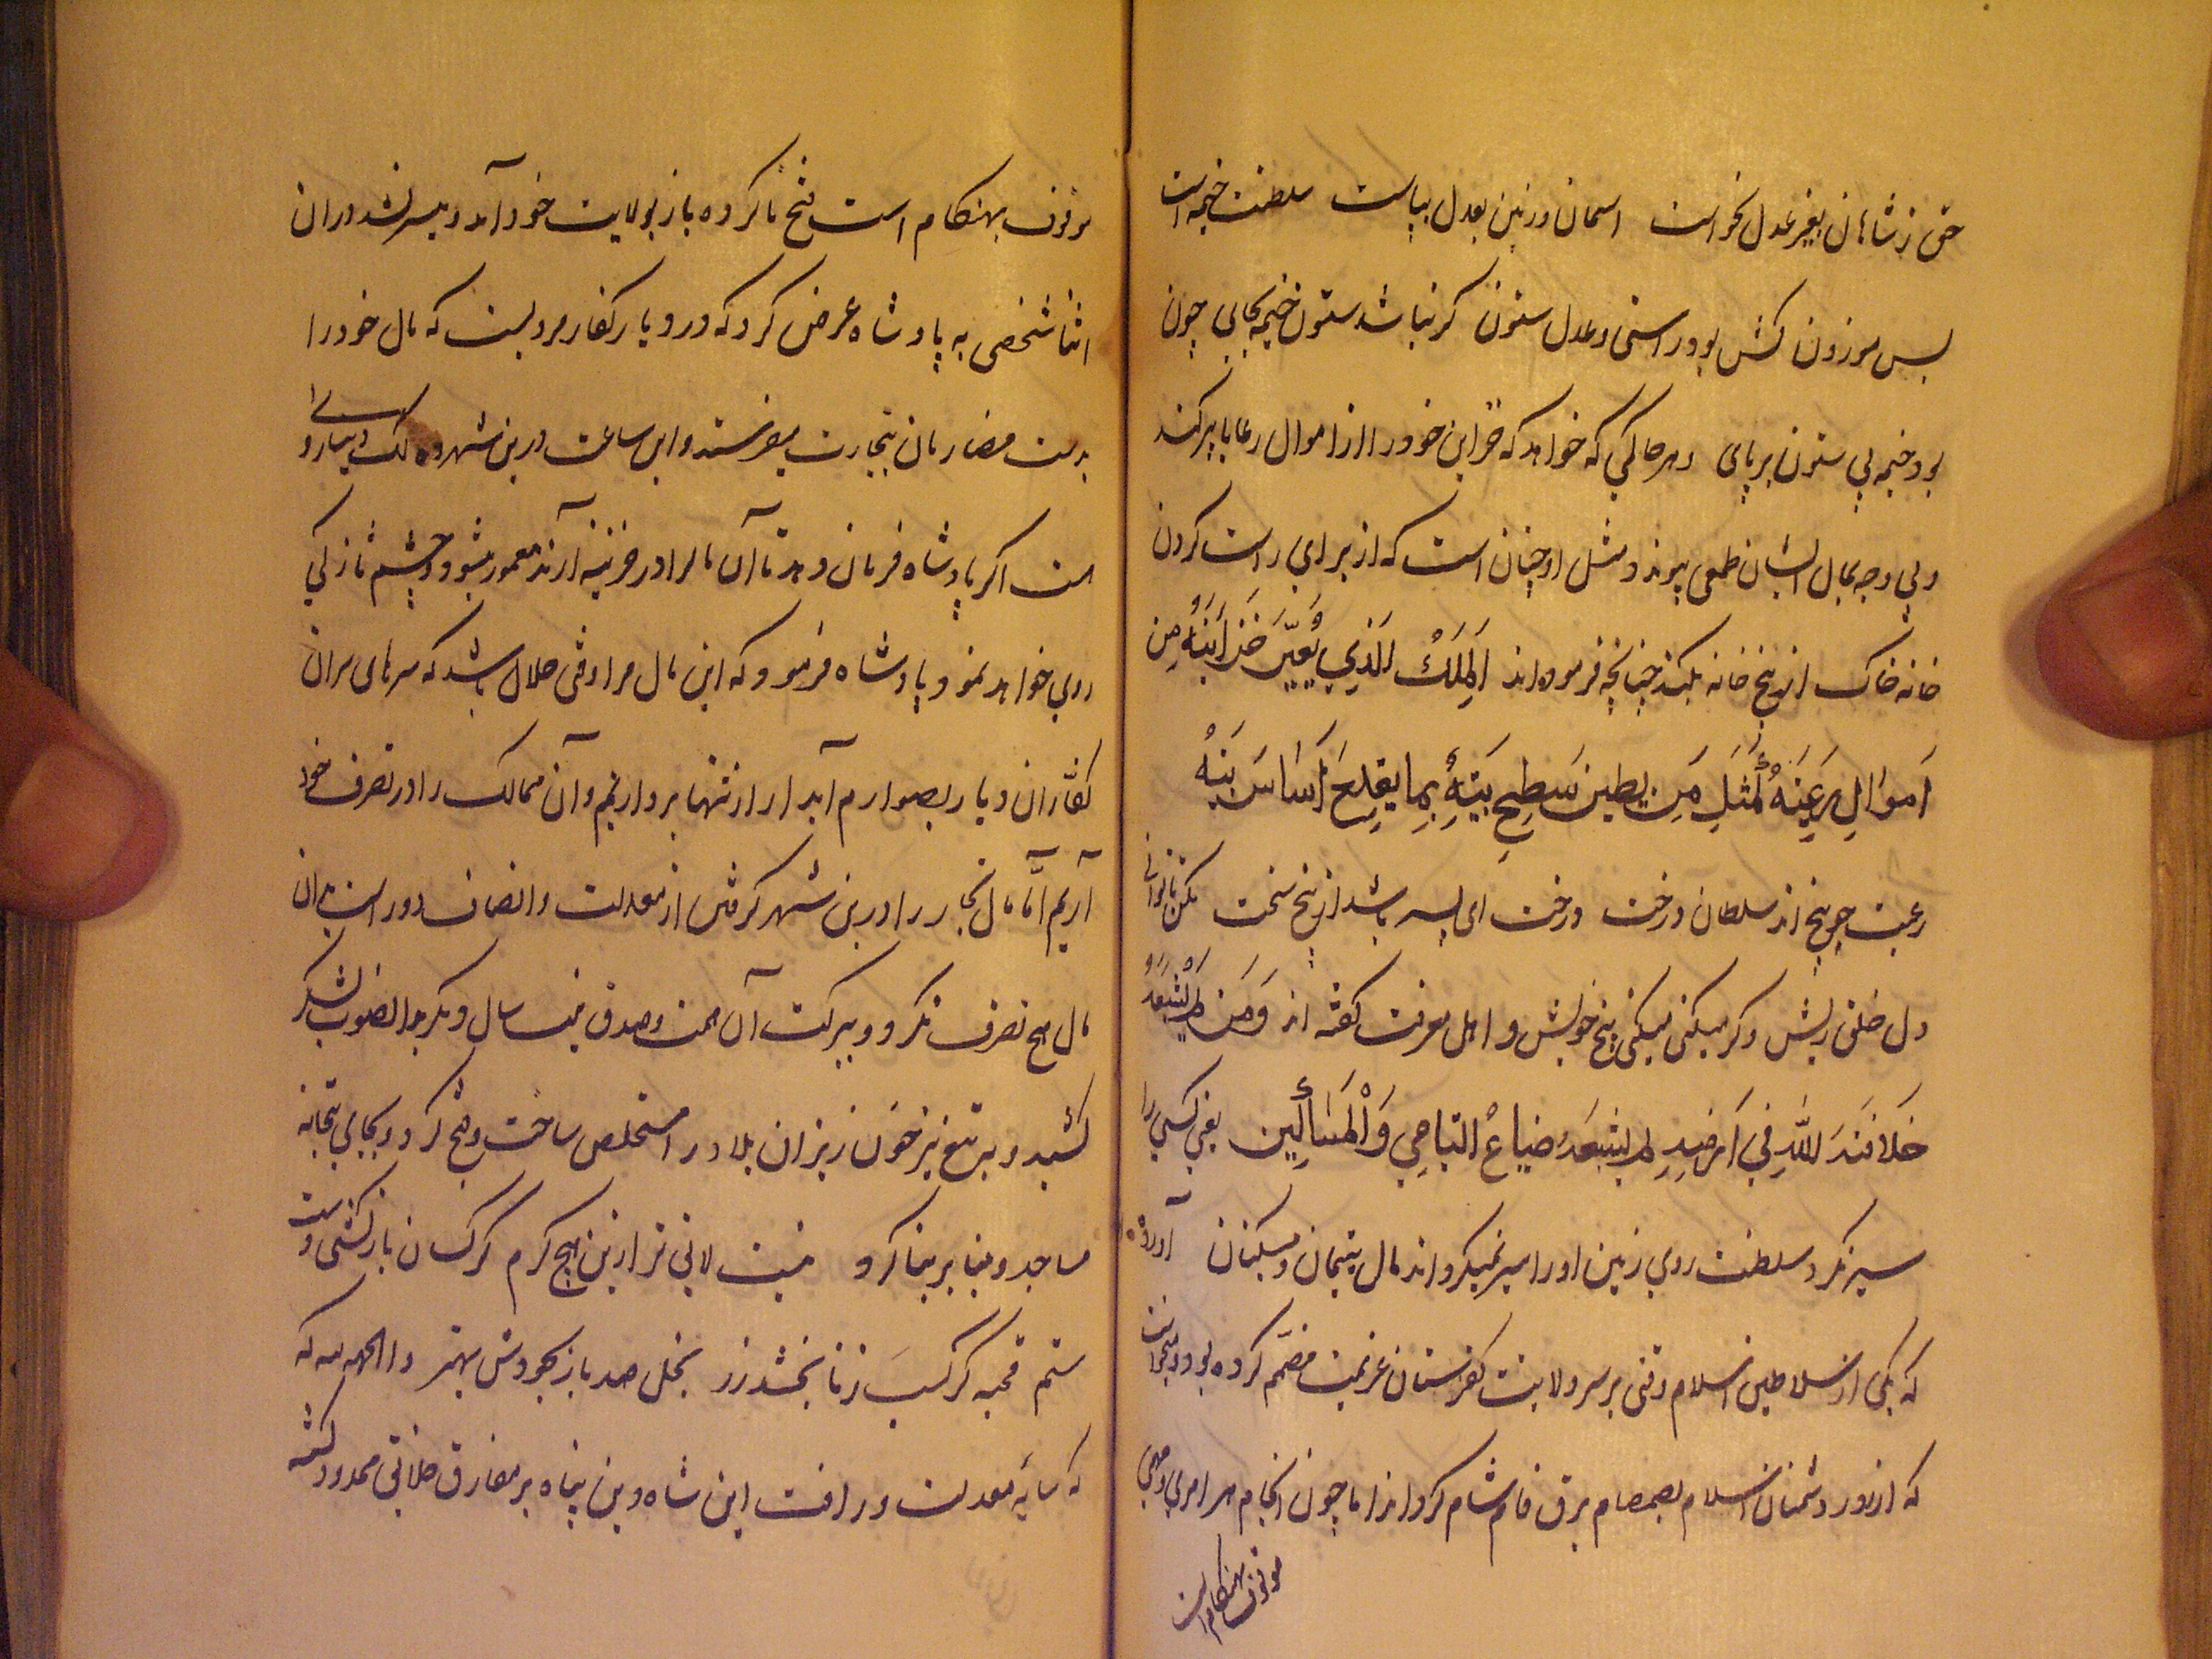 حق ز شاهان بغیر عدل نخواست اسمان و زمین بعدل بپاست سلطنت خیمه است
بس موزون کش بود راستی و عدل ستون کر نباشد ستون خیمه بجای چون
بود خیمه بی ستون بر پای و هر حاکمی که خواهد که خزاین خود را از اموال رعایا پر کند
و بی وجه بمال ایشان طمعی پیوند و مثل او چنان است که از برای راست کردن
خانه خاک از بیخ خانه بکند چنانچه فرموده اند اَلمَلِکُ الَّذی یُعَمِّرَ خَزَاینَهُ مِن
اَموَالِ رَعِیَتهِ کَمَثَلِ مَن یطین سَطحِ بَیتهِ بِما یقلِعَ اَسَاسَ بَیتهُ
رعیت چو بیخ اند سلطان درخت درخت ای پسر باشد از بیخ سخت مکن تا توانی
دل خلق ریش وکر میکنی میکنی بیخ خویش و اهل معرفت کفته اند وَمَن لم یُشبعَهُ
خَلافَتَهَ للّهِ فی اَرضِهِ لم یشبعَهُ ضیاعُ الیتامی وَالمَسَاکین یعنی کسی را
سیر نکرد سلطنت روی زمین اورا سیر نمیکرداند مال یتیمان و مسکینان آورده
که یکی از سلاطین اسلام وقتی بر سر ولایت کفرستان عزیمت مصمّم کرده بود و میخواست
که از روز دشمنان اسلام بصمصام برق فام شام کرداند اما چون انجام هر امری و مهمی
موقوف بهنکام است
موقوف بهنکام است فتح ناکرده باز بولایت خود آمد و میسر نشد در ان
اثنا شخصی به پادشاه عرض کرد که در دیار کفار مردیست که مال خود را
بدست مضاربان بتجارت میفرستد و این ساعت درین شهر ده لک دینار او
است اکر پادشاه فرمان دهد تا آن مال را در خزینه آرند معمور میشود و حشم تازکی
روی خواهد نمود پادشاه فرمود که این مال مرا وقتی حلال باشد که سرهای سران
کفّاران دیار بصوارم آبدار از تنها برداریم و آن ممالک را در تصرف خود
آریم امّا مال تجار را درین شهر کرفتن از معدلت و انصاف دور است بدان
مال هیچ تصرف نکرد و ببرکت آن همت و صدق نیت سال دیکر بدانصوب لشکر
کشید و بر تیغ تیز خون ریزان بلاد را مستخلص ساخت و فتح کرد و بجای بتخانه
مساجد و منابر بنا کرد نیست لایق تر ازین هیچ کرم کز کسان باز کشی دست
ستم قحبه کز کسب زنا بخشد زر بخل صد بار ز جودش بهتر و الحمد لله که
که سایه معدلت و رافت این شاه دین پناه بر مفارق خلایق ممدود کشته